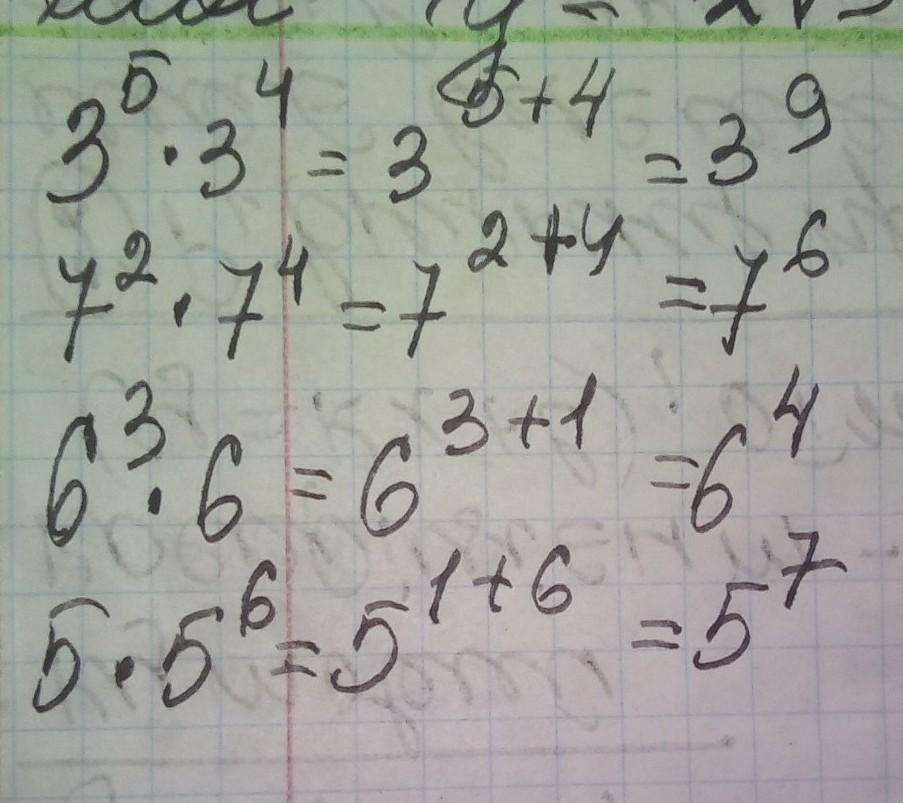 3⁵ · 3⁴ = 3⁵⁺⁴ = 3⁹
7² · 7⁴ = 7²⁺⁴ = 7⁶
6³ · 6 = 6³⁺¹ = 6⁴
5 · 5⁶ = 5¹⁺⁶ = 5⁷